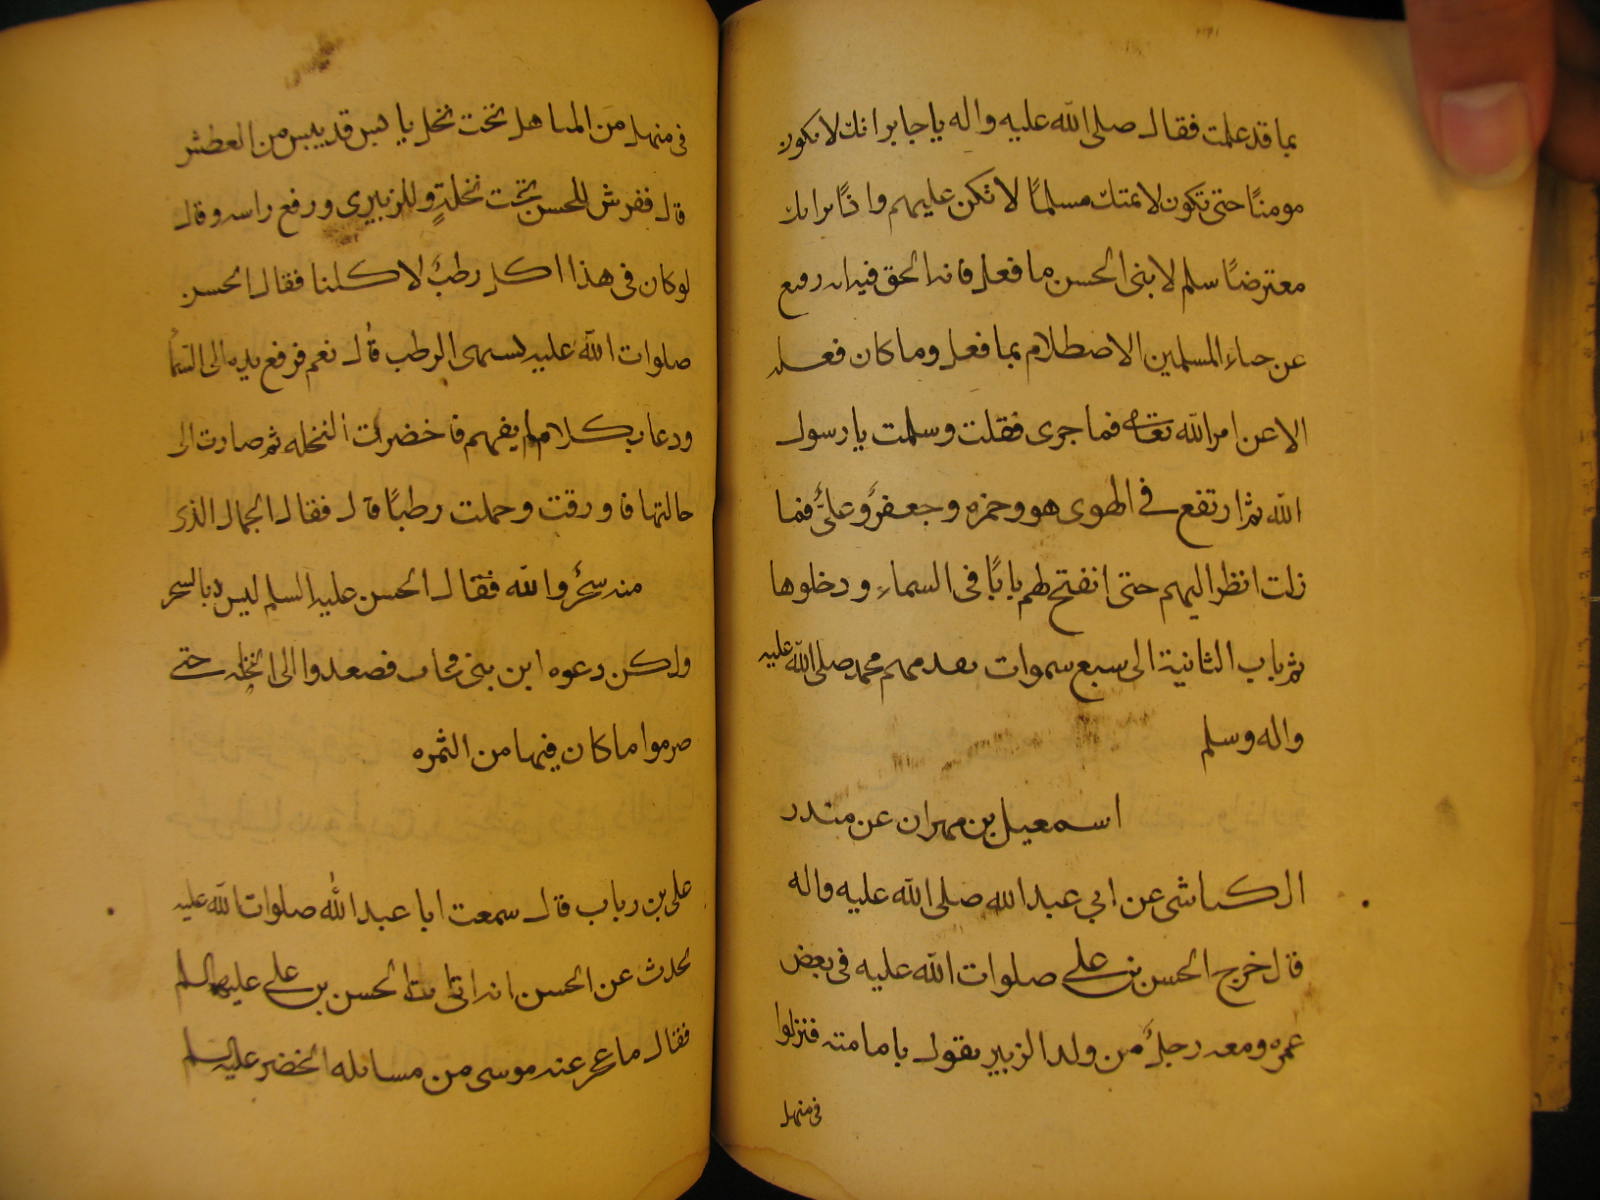 بما قد علمت فقال صلى الله عليه واله يا جابر انك لا تكون
مومنًا حتى تكون لائمتك مسلمًا لا تكن عليهم واذًا برايك
معترضًا سلم لابنى الحسن ما فعل فانه الحق فيه انه دفع
عن حياة المسلمين الاصطلام بما فعل وما كان فعله
الا عن امر الله تعالى فما جرى فقلت وسلمت يا رسول
الله ثم ارتفع في الهوى هو وحمزه وجعفرٌ وعلىٌّ فما
زلت انظر اليهم حتى انفتح لهم بابًا فى السماء ودخلوها
ثم باب الثانية الى سبع سموات يقدمهم محمد صلى الله عليه
واله وسلم
اسمعيل بن مهران عن منذر
الكناشى عن ابي عبد الله صلى الله عليه واله
قال خرج الحسن بن على صلوات الله عليه فى بعض
عمره ومعه رجلٌ من ولد الزبير يقول بامامته فنزلوا
فى منهل
فى منهل من المناهل تحت نخل يابس قد يبس من العطش
قال ففرش للحسن تحت نخلةٍ وللزبيرى ورفع راسه وقال
لو كان فى هذا اكل رطبٌ لاكلنا فقال الحسن
صلوات الله عليه تسمى الرطب قال نعم فرفع يده الى السمأ
ودعا بكلام لم يفهم فاخضرت النخله ثم صارت الى
حالتها فاورقت وحملت رطبًا قال فقال الجمال الذى
منه سحرٌ والله فقال الحسن عليه السلم ليس ذا بالسحر
ولكن دعوه ابن بنى مجاب فصعدوا الى النخله حتى
صرموا ما كان فيها من الثمره
على بن رباب قال سمعت ابا عبد الله صلوات الله عليه
يحدث عن الحسن انه اتى الحسن بن على عليهم السلم
فقال ما عجز عنه موسى من مسائله الخضر عليه السلم